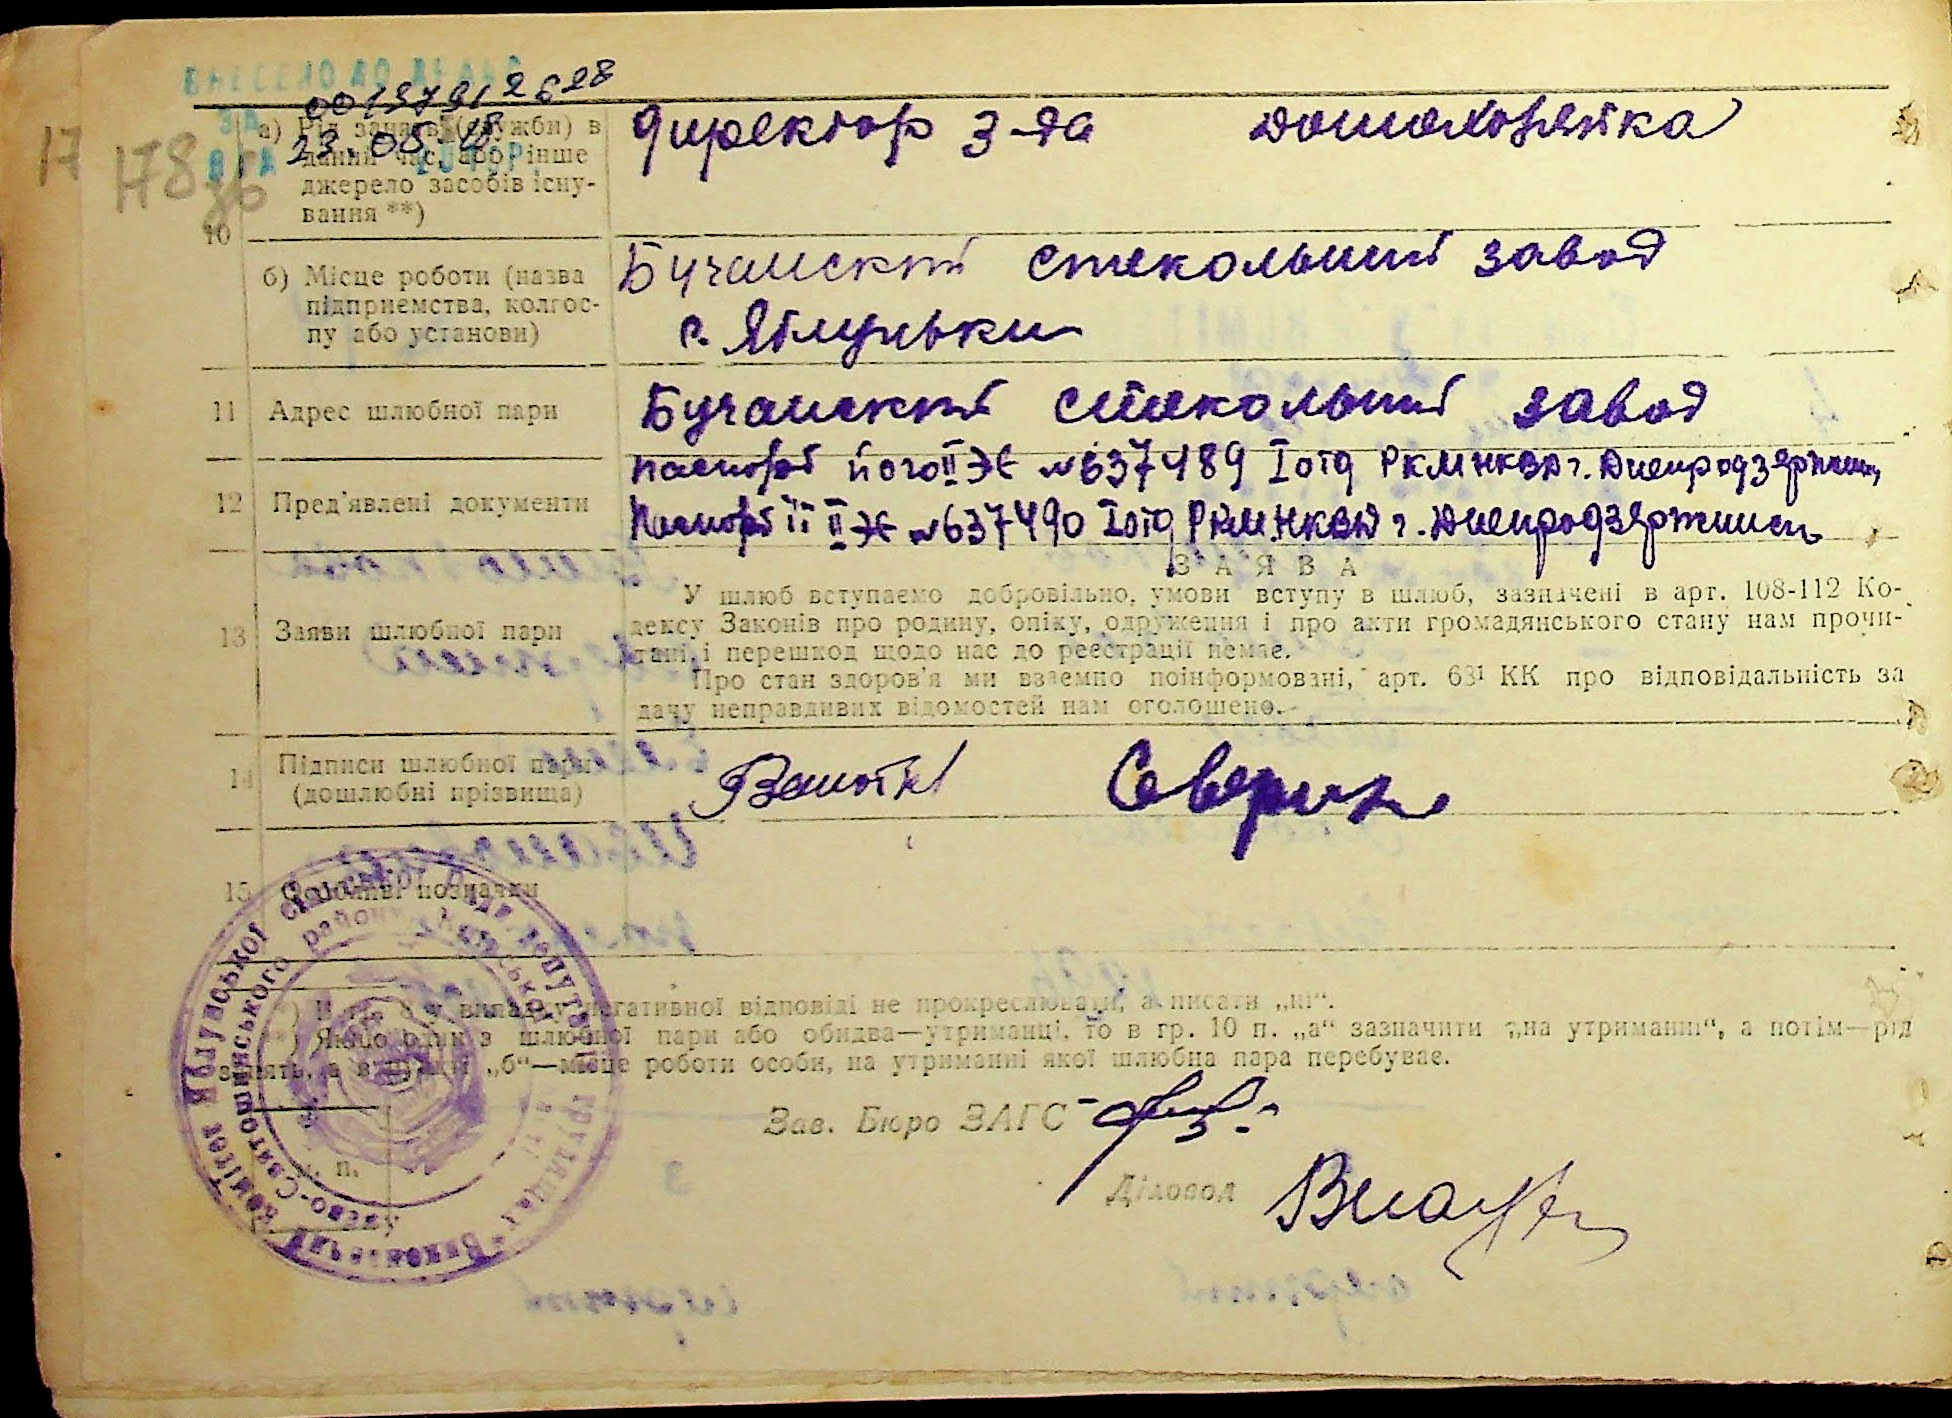 ВНЕСЕНО ДО ДРАЦС
00137912628
ЗА
23.05.18
17 178 зв
10
а) Рід занять (служби) в даний час, або інше джерело засобів існування **)
директор з-да домохозяйка
б) Місце роботи (назва
підприємства, колгос-
пу або установи)
Бучанский стекольний завод
с. Яблуньки
11 Адрес шлюбної пари Бучанский стекольний завод
12 Пред'явлені документи
паспорт його II ЭЄ №637489 I отд РКМ НКВД г. Днепродзержинск
Паспорт її II ЭЄ №637490 I отд РКМ НКВД г. Днепродзержинск
13 Заяви шлюбної пари
ЗАЯВА
У шлюб вступаємо добровільно, умови вступу в шлюб, зазначені в арт. 108-112 Ко-
дексу Законів про родину, опіку, одруження і про акти громадянського стану нам прочи-
тані і перешкод щодо нас до реєстрації немає.
Про стан здоров'я ми взаємно поінформовані, арт. 68¹ КК про відповідальність за
дачу неправдивих відомостей нам оголошено.
14 Підписи шлюбної пари
(дошлюбні прізвища)
Северин
15 Особливі позначки
*) В гр. 8 у випадку негативної відповіді не прокреслювати, а писати „ні“.
**) Якщо один з шлюбної пари або обидва—утриманці, то в гр. 10 п. „а“ зазначити „на утриманні“, а потім—рід
занять, а в пункті „б“—місце роботи особи, на утриманні якої шлюбна пара перебуває.
Зав. Бюро ЗАГС
м. п.
Діловод
Виконавчий комітет Яблунської сільської Ради депутатів трудящих
Києво-Святошинського району Київської